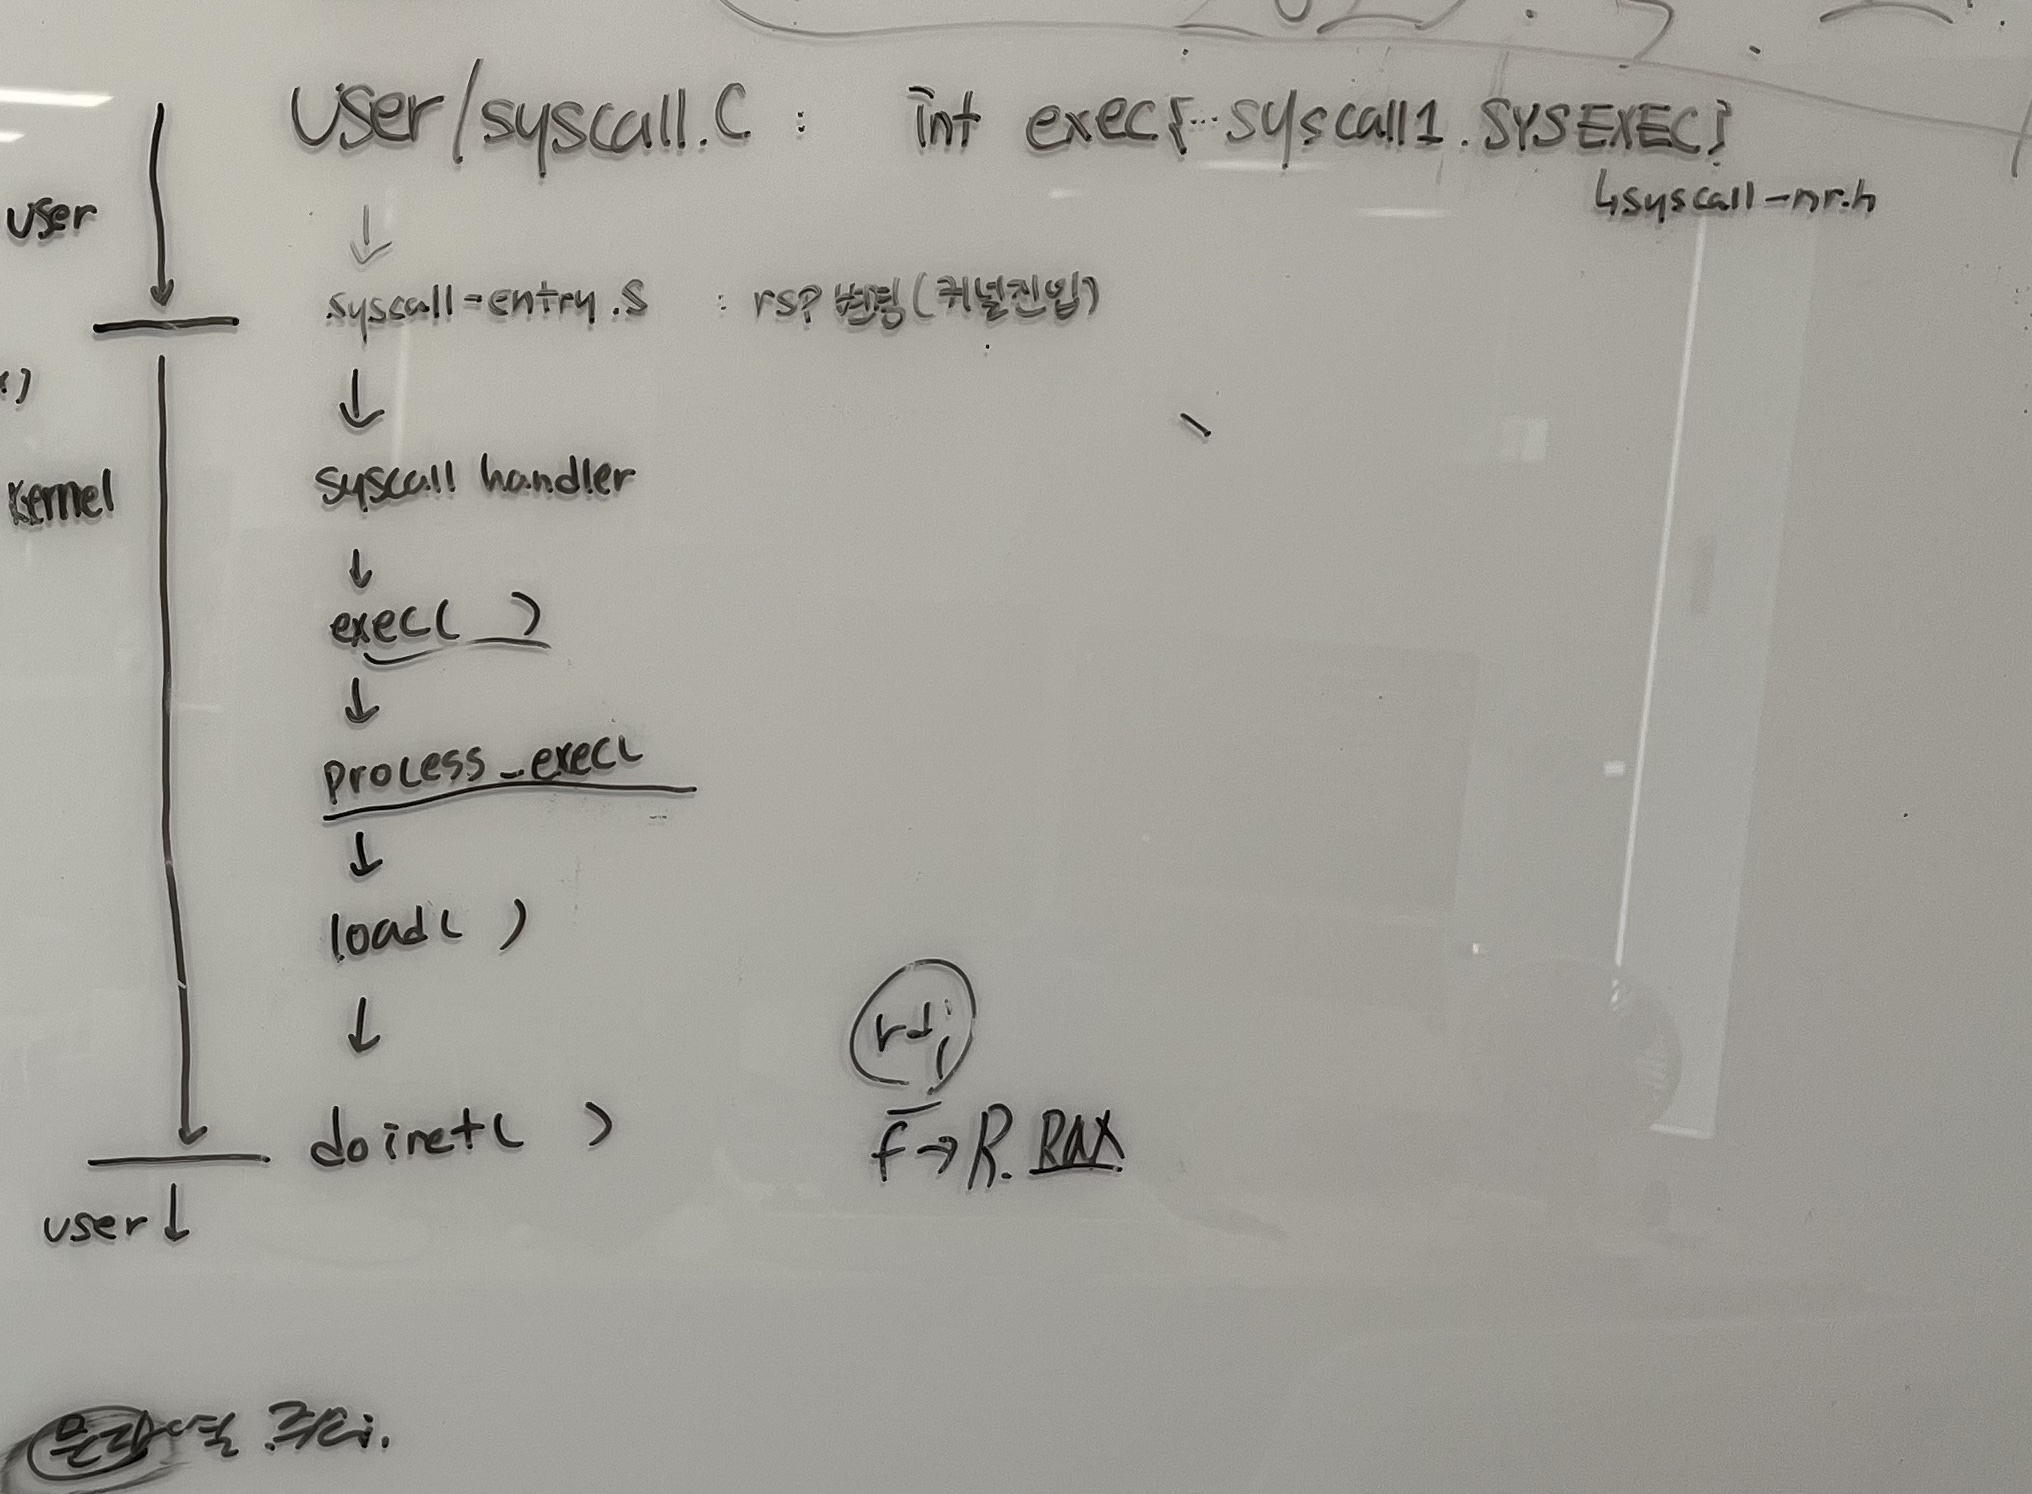 user/syscall.c : int exec{...syscall1.SYSEXEC}
↳syscall-nr.h
user
↓
syscall-entry.S : rsp 변경(커널진입)
↓
syscall handler
Kernel
↓
exec( )
↓
process_exec(
↓
load( )
↓
rdi
do iret( )
f→R.RAX
user↓
문자열